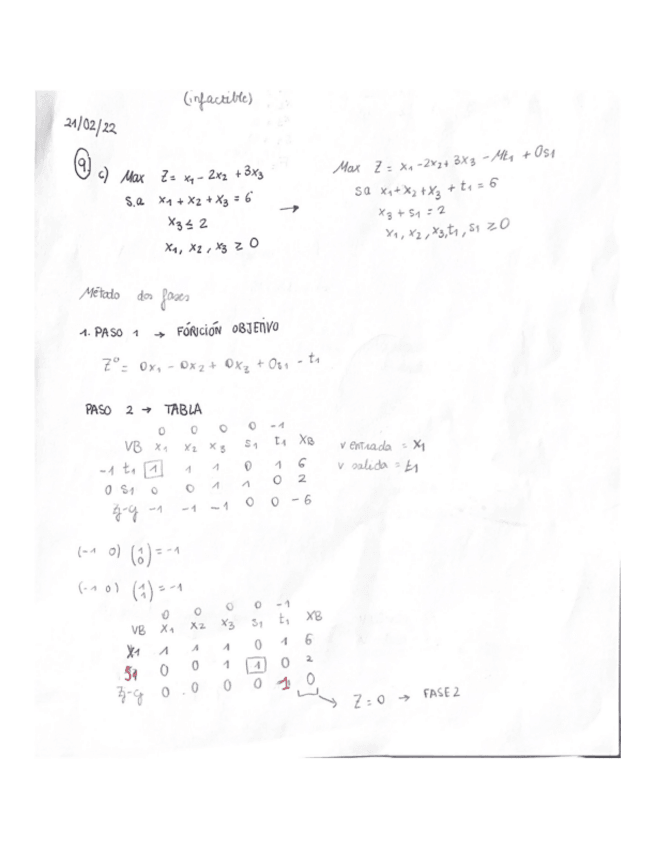 (infactible)
21/02/22
9. c) Max Z = x1 - 2x2 + 3x3
s.a x1 + x2 + x3 = 6
x3 ≤ 2
x1, x2, x3 ≥ 0
→
Max Z = x1 - 2x2 + 3x3 - Mt1 + 0s1
sa x1 + x2 + x3 + t1 = 6
x3 + s1 = 2
x1, x2, x3, t1, s1 ≥ 0
Método dos fases
1. PASO 1 → FÓRICIÓN OBJETIVO
Z° = 0x1 - 0x2 + 0x3 + 0s1 - t1
PASO 2 → TABLA
0 0 0 0 -1
VB x1 x2 x3 s1 t1 XB
-1 t1 1 1 1 0 1 6
0 s1 0 0 1 1 0 2
zj-cj -1 -1 -1 0 0 -6
v entrada = x1
v salida = t1
(-1 0) (1 0) = -1
(-1 0) (1 1) = -1
0 0 0 0 -1
VB x1 x2 x3 s1 t1 XB
x1 1 1 1 0 1 6
s1 0 0 1 1 0 2
zj-cj 0 0 0 0 1 0
→ Z = 0 → FASE 2